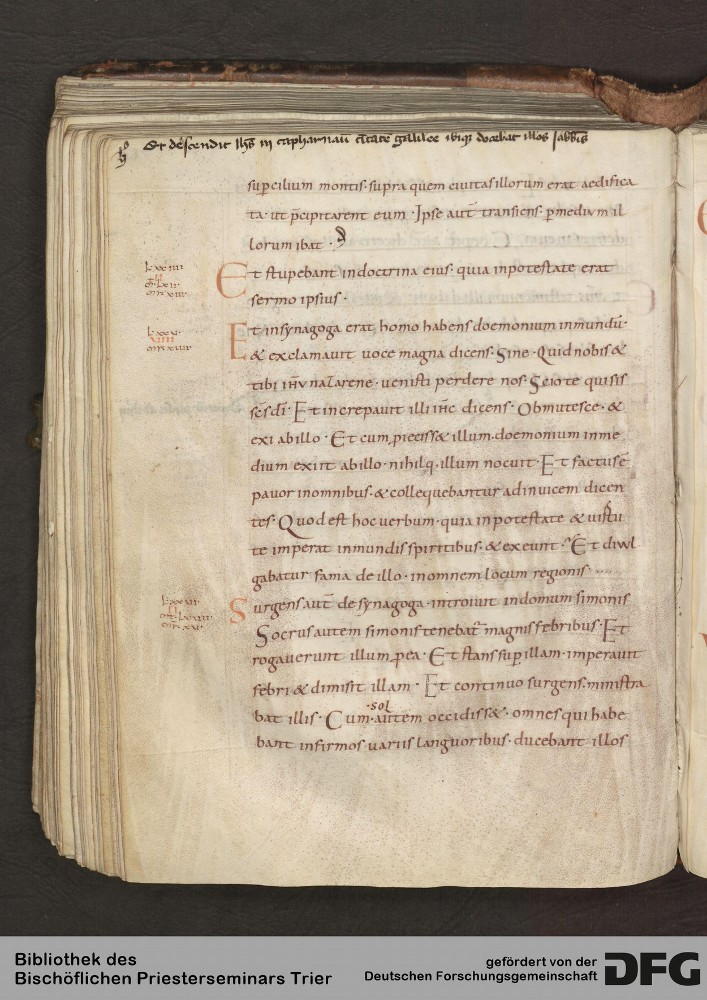 Et descendit Ihs in capharnaū ciuitatē galilee ibiq; docebat illos sabbis
supcilium montis. supra quem ciuitas illorum erat aedifica
ta. ut p̄cipitarent eum. Ipse aut̄ transiens pmedium il
lorum ibat.
Et stupebant in doctrina eius. quia in potestate erat
sermo ipsius.
Et in synagoga erat homo habens doemonium inmundū.
& exclamauit uoce magna dicens. Sine. Quid nobis &
tibi ihu nazarene. uenisti perdere nos. Scio te qui sis
scs dī. Et increpauit illi ihc dicens. Obmutesce. &
exi ab illo. Et cum proiecisset illum. doemonium in me
dium exiit ab illo. nihilq. illum nocuit. Et factus ē
pauor in omnibus. & colloquebantur ad inuicem dicen
tes. Quod est hoc uerbum. quia in potestate & uirtu
te imperat inmundis spiritibus. & exeunt. Et diuul
gabatur fama de illo. in omnem locum regionis.
Surgens aut̄ de synagoga. introiuit in domum simonis
Socrus autem simonis tenebat̄ magnis febribus. Et
rogauerunt illum p ea. Et stans sup illam. imperauit
febri & dimisit illam. Et continuo surgens. ministra
bat illis. Cum .sol. autem occidiss&. omnes qui habe
bant infirmos uariis languoribus. ducebant illos
Bibliothek des
Bischöflichen Priesterseminars Trier
gefördert von der
Deutschen Forschungsgemeinschaft
DFG